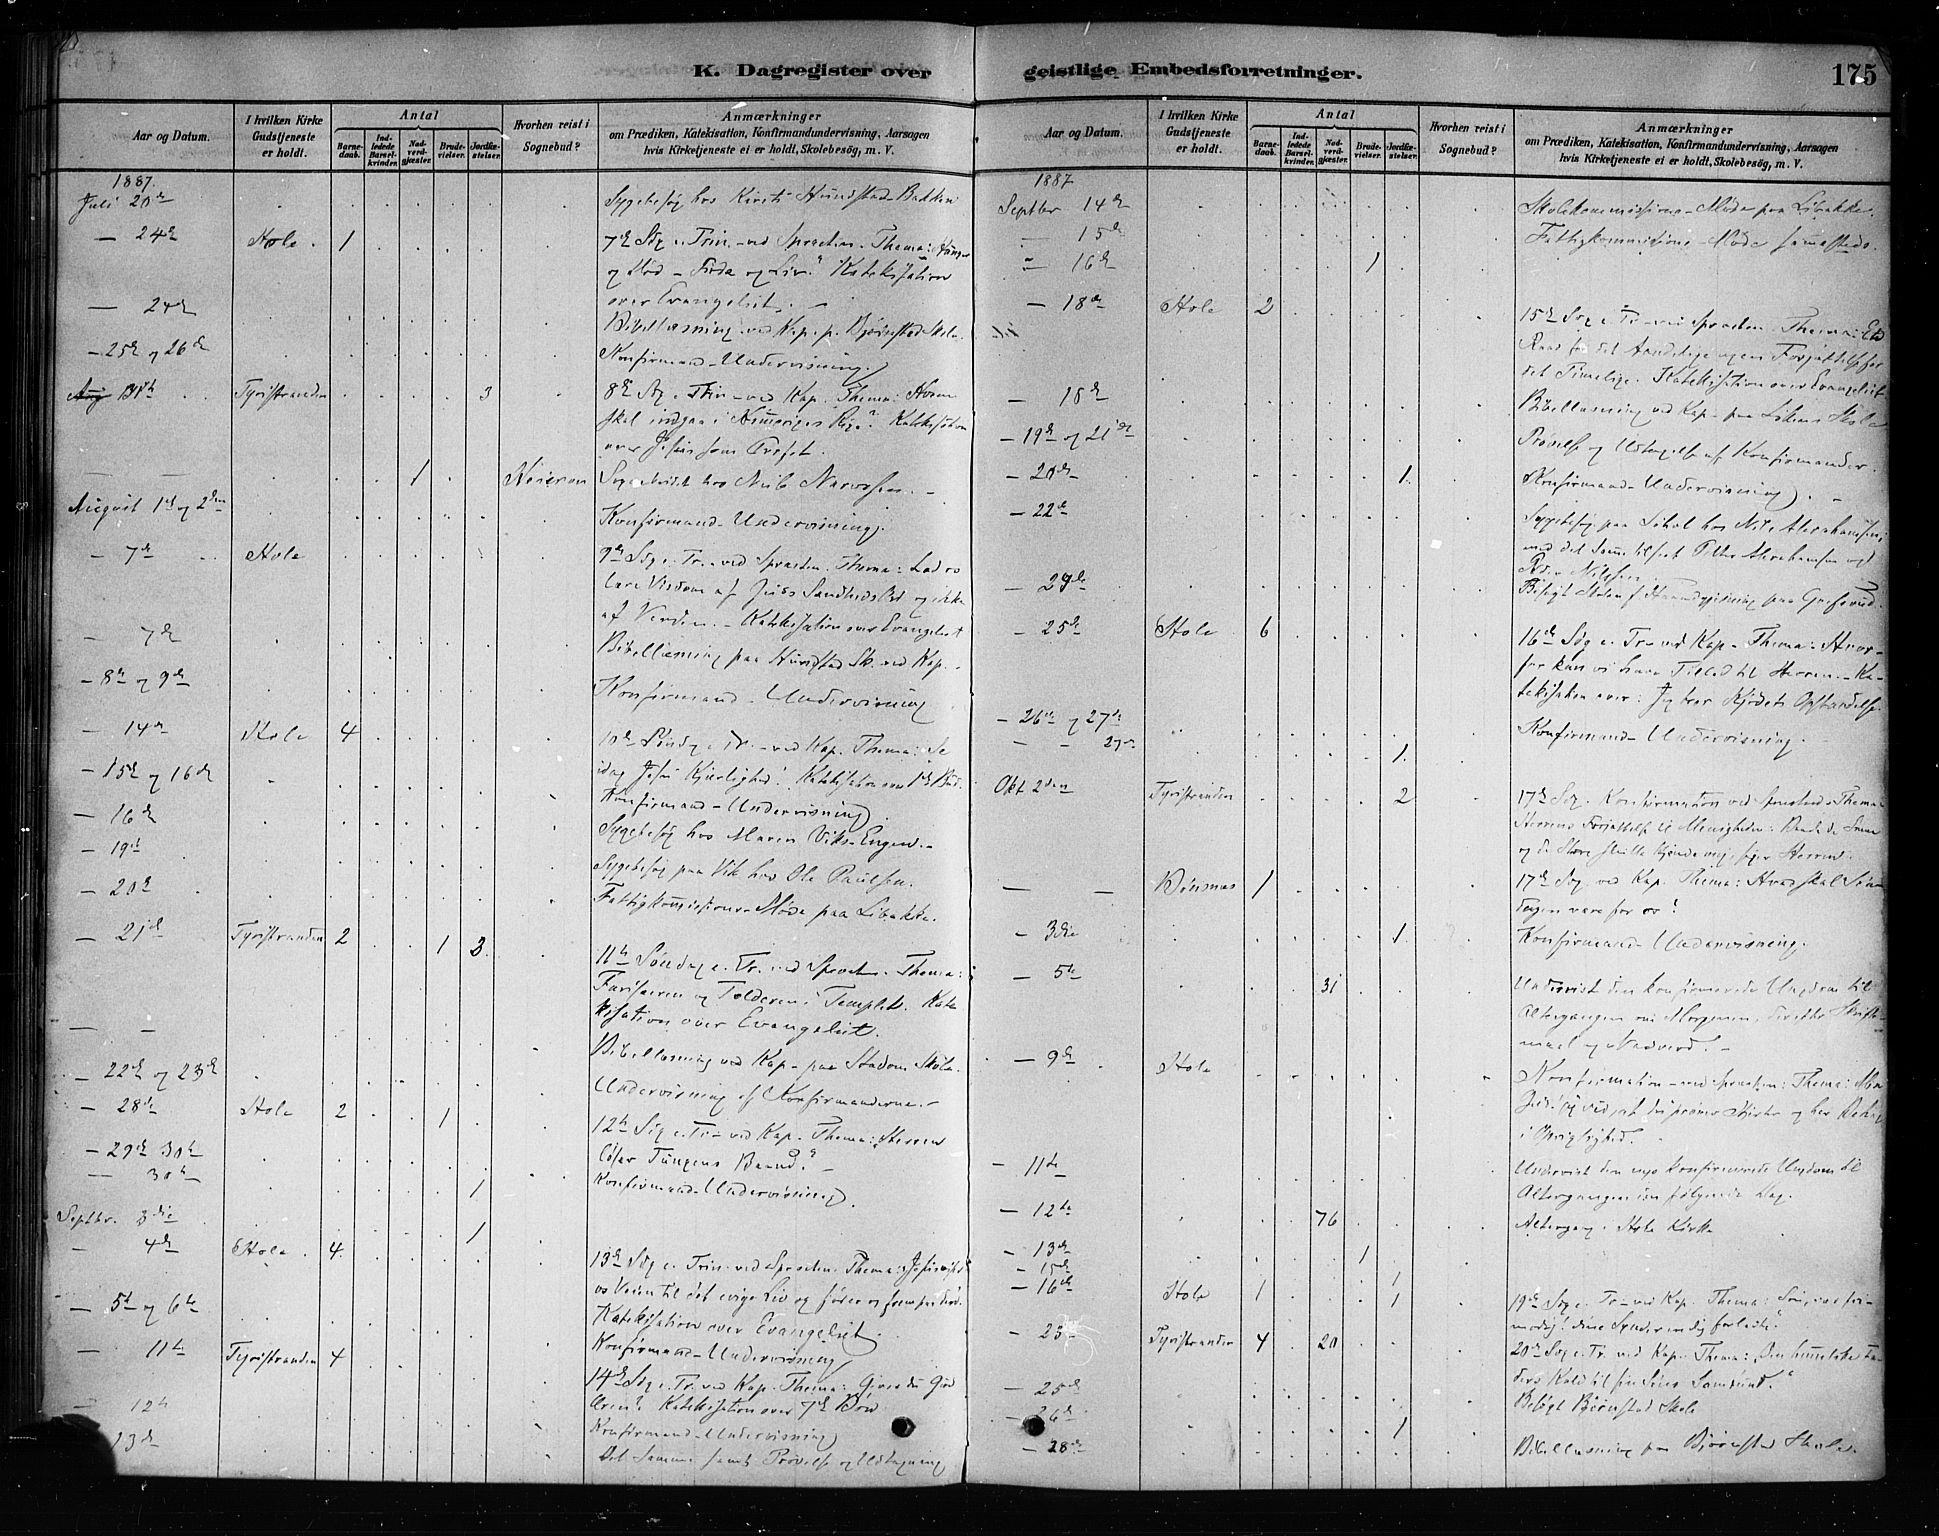 K. Dagregister over geistlige Embedsforretninger. 175
Aar og Datum.
I hvilken Kirke Gudstjeneste er holdt.
Antal
Barnedaab.
Indledede Barselkvinder.
Nadverdgjæster.
Brudevielser.
Jordfæstelser.
Hvorhen reist i Sognebud?
Anmærkninger
om Prædiken, Katekisation, Konfirmandundervisning, Aarsagen
hvis Kirketjeneste ei er holdt, Skolebesøg, m. V.
1887.
Juli 20de Sygebesøg hos Kirsti Hundstad-Bakken
— 24de Hole. 1 7de Søg e. Trin. ved Sprsten. Thema:
og Død – Synd og Liv. Katekisation
over Evangeliet.
— 24de Bibellæsning ved Kap. p. Bjørnstad Skole.
— 25de og 26de Konfirmand-Undervisning.
31te Tyristranden 3 8de Søg e. Trin. ved Kap. Thema: Hvem
skal indgaa i Himmeriges Rige? Katekisation
over
— — 1 Sognebudet hos Nils
August 1ste og 2den Konfirmand-Undervisning.
— 7de Hole 9de Søg e. Tr. ved Sprsten. Thema: Lad os
lære Visdom af Guds Sandheds Ord og ikke
af Verden. – Katekisation over Evangeliet
— 7de Bibellæsning paa Hundstad Sk. ved Kap.
— 8de og 9de Konfirmand-Undervisning
— 14de Hole 4 10de Søndag e. Tr. ved Kap. Thema: Se
idag Jesu Kjærlighed! Katekisation over 1ste Bud.
— 15de og 16de Konfirmand-Undervisning.
— 16de Sygebesøg hos Maren Viks-Engen.
— 19de Sygebesøg paa Vik hos Ole Paulsen.
— 20de Fattigkommissions-Møde paa Libakke.
— 21de Tyristranden 2 1 3 11te Søndag e. Tr. ved Sprsten. Thema:
Farisæeren og Tolderen i Templet. Kate
kisation over Evangeliet.
— — Bibellæsning ved Kap. paa Stadum Skole.
— 22de og 23de Undervisning af Konfirmanderne.
— 28de Hole 2 1 12te Søg e. Tr. ved Kap. Thema: Herren
løser Tungens Baand.
— 29de 30te Konfirmand-Undervisning
— 30te 1
Septbr. 3die 1
— 4de Hole. 4. 13de Søg e. Trin. ved Sprsten. Thema: Jesus viser
os Veien til det evige Liv og fører os frem paa den.
Katekisation over Evangeliet.
— 5te og 6te Konfirmand-Undervisning
— 11te Tyristranden 4 14de Søg e. Tr. ved Kap. Thema: Giver du Gud
Æren? Katekisation over 7de Bøn
— 12te Konfirmand-Undervisning
13de Det Samme samt Prøvelse og Udtagning
Aar og Datum.
I hvilken Kirke Gudstjeneste er holdt.
Antal
Barnedaab.
Indledede Barselkvinder.
Nadverdgjæster.
Brudevielser.
Jordfæstelser.
Hvorhen reist i Sognebud?
Anmærkninger
om Prædiken, Katekisation, Konfirmandundervisning, Aarsagen
hvis Kirketjeneste ei er holdt, Skolebesøg, m. V.
1887
Septbr 14de Skolekommissions-Møde paa Libakke.
— 15de Fattigkommissions-Møde sammesteds.
— 16de 1
— 18de Hole 2 15de Søg e. Tr. ved Sprsten. Thema: Et
Raad for det Aandelige og en Forjættelse for
det Timelige. Katekisation over Evangeliet
— 18de Bibellæsning ved Kap. paa Skole
— 19de og 21de Prøvelse og Udtagelse af Konfirmander.
— 20de 1. Konfirmand-Undervisning.
— 22de Sygebesøg paa hos Nils Abrahamsen,
med det Samme tilseet Abrahamsen og
Nilsen.
Besøgt Skolen
— 25de Hole 6 16de Søg e. Tr. ved Kap. Thema: Hvor-
for kan vi have Tillid til Herren. – Ka-
tekisation over: Jeg tror Kjødets Opstandelse.
— 26de og 27de Konfirmand-Undervisning.
— — 27de 1.
Okt 2den Tyristranden 2 17de Søg. Konfirmation ved Sprsten. Thema:
Herrens Forjættelse til Menigheden: Baade de Smaa
og de Store skulle kjende mig, siger Herren.
— — Bønsnæs 1 17de Søg ved Kap. Thema: Hvad skal Søn-
dagen være for os?
— 3die 1. Konfirmand-Undervisning.
— 5te 31 Undervist den konfirmerede Ungdom til
Altergangen om Morgenen, derefter Skrifte-
maal og Nadverd.
— 9de Hole Konfirmation ved Sprsten: Thema: Min
Gud! jeg ved, at du prøver Hjerter og har Behag
i Oprigtighed.
— 11te Undervist den nye konfirmerede Ungdom til
Altergangen den følgende Dag.
— 12te 76 Altergang i Hole Kirke
— 13de 1
— 15de 1
— 16de Hole 1 1 19de Søg e. Tr. ved Kap. Thema: Søn, vær fri-
modig! dine Synder er dig forladte.
— 23 Tyristranden 4 20 20de Søg e. Tr. ved Kap. Thema: Den himmelske Fa-
ders Kald til sin Søns Samfund.
— 25de Besøgt Bjørnstad Skole
— 26de 1
— 28de Bibellæsning paa Bjørnstad Skole.